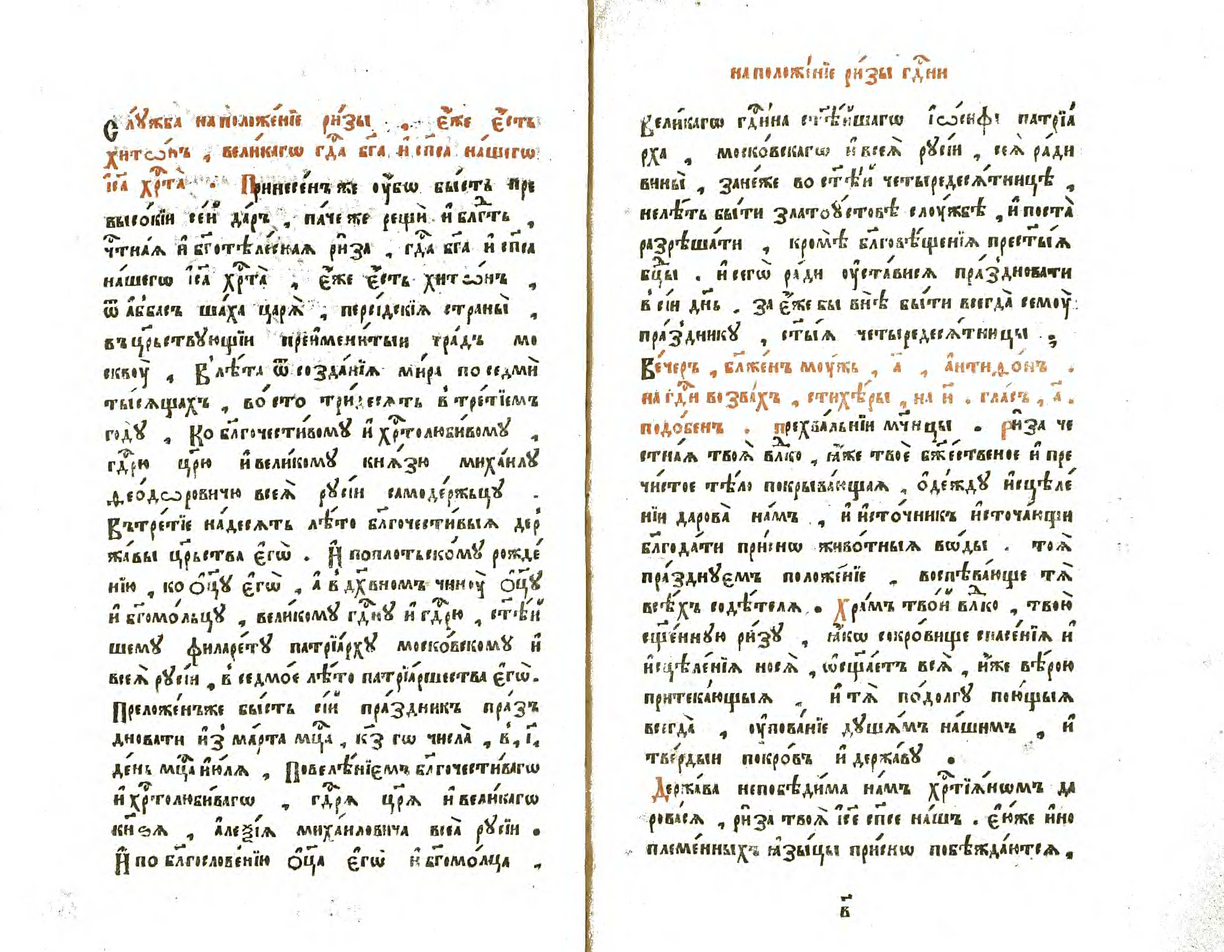 Слꙋ́жба на положе́нїе ри́зы . є҆́же є҆́сть
хито́нъ , вели́кагѡ гдⷭ҇а бг҃а и҆ сп҃са на́шегѡ
і҆с҃а хрⷭ҇та̀ . Принесе́нъ же ᲂу҆́бѡ бы́сть пре
высо́кїи се́й да́ръ , па́че же рещѝ и҆ блгⷣть ,
чⷭ҇тна́ѧ и҆ бг҃отѣле́снаѧ ри́за , гдⷭ҇а бг҃а и҆ сп҃са
на́шегѡ і҆с҃а хрⷭ҇та̀ , є҆́же є҆́сть хито́нъ ,
ѿ а҆ббасъ ша́ха царѧ̀ , персі́дскїѧ страны̀ ,
въ црⷭ҇твꙋющїи преи́мени́тыи гра́дъ мо
сквꙋ̀ , В лѣ́та ѿ созда́нїѧ ми́ра по седмѝ
ты́сѧщахъ , во́ сто три́десѧть в тре́тїемъ
годꙋ̀ , Ко бл҃гочести́вомꙋ и҆ хрⷭ҇толюби́вомꙋ ,
гдⷭ҇рю цр҃ю и҆ вели́комꙋ кнѧ́зю михаи́лꙋ
ѳео́дѡровичю всеѧ̀ рꙋсі́и самоде́ржьцꙋ .
Въ тре́тїе на́десѧть лѣ́то бл҃гочести́выѧ дер
жа́вы црⷭ҇тва є҆гѡ̀ . И҆ по пло́тьскомꙋ рожде́
нїю , ко ѻ҆ц҃ꙋ̀ є҆гѡ̀ , а҆ в дх҃вномъ чи́нꙋ ѻ҆ц҃ꙋ̀
и҆ бг҃омо́льцꙋ , вели́комꙋ гдⷭ҇нꙋ и҆ гдⷭ҇рю , ст҃ѣ́й
шемꙋ филаре́тꙋ патрїа́рхꙋ моско́вскомꙋ и҆
всеѧ̀ рꙋсі́и , в седмо́е лѣ́то патрїа́ршества є҆гѡ̀ .
Преложе́нъже бы́сть сі́й пра́здникъ пра́зъ
дновати и҆з̾ ма́рта мцⷭ҇а , к҃з гѡ числа̀ , в , і҃ ,
де́нь мцⷭ҇а и҆ю́лѧ , Повелѣ́нїемъ бл҃гочести́вагѡ
и҆ хрⷭ҇толюби́вагѡ , гдⷭ҇рѧ цр҃ѧ и҆ вели́кагѡ
кнѧ́зѧ , а҆леѯі́ѧ миха́иловича всеѧ̀ рꙋсі́и .
И҆ по бл҃гослове́нїю ѻ҆ц҃а̀ є҆гѡ̀ и҆ бг҃омо́лца ,
на положе́нїе ри́зы гдⷭ҇ни
вели́кагѡ гдⷭ҇ина ст҃ѣ́йшагѡ і҆ѡ́сифа патрїа́
рха , моско́вскагѡ и҆ всеѧ̀ рꙋсі́и , сеѧ̀ ра́ди
вины̀ , зане́же во ст҃ѣ́й четыредесѧ́тницѣ ,
нелѣ́ть бы́ти златоꙋ́стовѣ слꙋ́жбѣ , и҆ поста̀
разрѣша́ти , кромѣ̀ бл҃говѣ́щенїѧ прест҃ы́ѧ
бц҃ы . и҆ сегѡ̀ ра́ди ᲂу҆ста́висѧ пра́здновати
в се́й дн҃ь . за є҆́же бы внѣ̀ бы́ти всегда̀ семꙋ̀
пра́здникꙋ , ст҃ы́ѧ четыредесѧ́тницы ,
Ве́черъ , бл҃же́нъ мꙋ́жь , а҃ , а҆нтифо́нъ .
на гдⷭ҇и возва́хъ , стихѣ́ры , на и҃ . гла́съ , а҃ .
подо́бенъ . прехва́льнїи мч҃ницы . Ри́за че
стна́ѧ твоѧ̀ влⷣко , ꙗ҆́же твоѐ бж҃ественое и҆ пре
чи́стое тѣ́ло покрыва́ющаѧ , о҆де́ждꙋ и҆сцѣле́
нїи дарова̀ на́мъ , и҆ и҆сто́чникъ и҆сточа́ющи
бл҃года́ти при́снѡ живо́тныѧ во́ды . тоѧ̀
пра́зднꙋемъ положе́нїе , воспѣва́юще тѧ̀
всѣ́хъ содѣ́телѧ . Хра́мъ тво́й влⷣко , твою̀
сщ҃е́ннꙋю ри́зꙋ , ꙗ҆́кѡ сокро́вище спасе́нїѧ и҆
и҆сцѣле́нїѧ носѧ̀ , ѡ҆сщ҃а́етъ всѧ̀ , и҆́же вѣ́рою
притека́ющыѧ , и҆ тѧ̀ по до́лгꙋ пою́щыѧ
всегда̀ , ᲂу҆пова́нїе дꙋша́мъ на́шимъ , и҆
тве́рдыи покро́въ и҆ держа́вꙋ .
Держа́ва непобѣди́ма на́мъ хрⷭ҇тїѧ́нѡмъ да
рова́сѧ , ри́за твоѧ̀ і҆с҃е сп҃се на́шъ . є҆́юже и҆но
племе́нныхъ ꙗ҆зы́цы при́снѡ побѣжда́ютсѧ ,
в҃